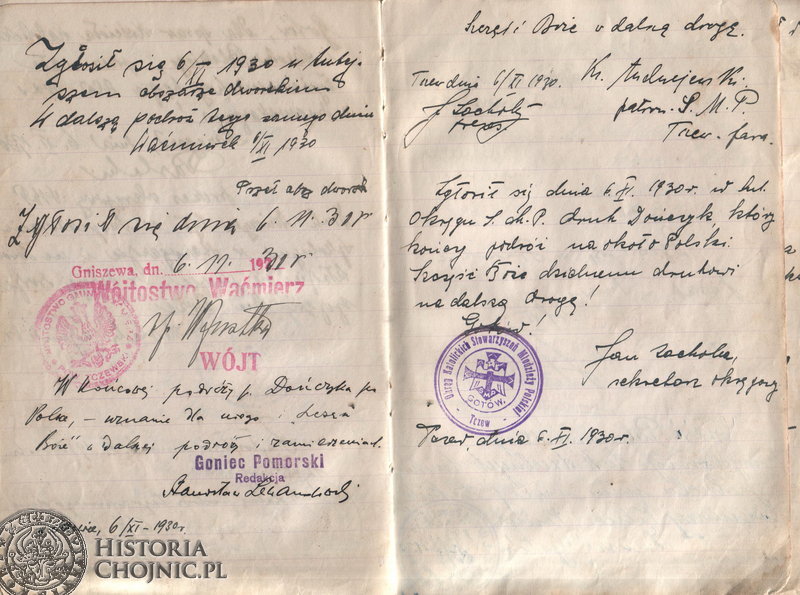 Zgłosił się 6/XI 1930 w tutej-
szem obszarze dworskiem
W dalszą podróż tego samego dnia
Waćmierek 6/XI 1930
Przeł. obsz. dworsk
Zgłosił się dnia 6.11.30r
Gniszewa, dn. 6.11. 1930r
Wójtostwo Waćmierz
WÓJT
W końcowej podróży p. Dończyka po
Polsce, – uznanie dla niego i „Szczęść
Boże" w dalszej podróży i zamierzeniach.
Goniec Pomorski
Redakcja
6/XI – 1930r.
HISTORIA
CHOJNIC.PL
Szczęść Boże w dalszą drogę.
Tczew dnia 6/XI 1930. Ks. Andrzejewski.
patron S. M. P.
Tczew-fara.
prezes
Zgłosił się dnia 6.XI. 1930r. w tut.
Okręgu S. M. P. druh Dończyk, który
kończy podróż na około Polski.
Szczęść Boże dzielnemu druhowi
na dalszą drogę!
Gotów!
Okręg Katolickich Stowarzyszeń Młodzieży Polskiej
GOTÓW
- Tczew -
Jan Zachola,
sekretarz okręgowy
Tczew, dnia 6.XI. 1930r.